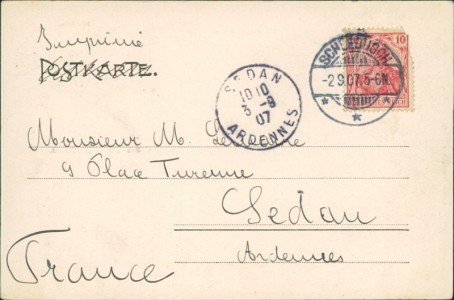 Imprimé
POSTKARTE.
SCHLEBUSCH
-2.9.07.5-6N.
* * *
10
SEDAN
10 10
3 -9
07
ARDENNES
Monsieur M.
9 Place Turenne
Sedan
Ardennes
France